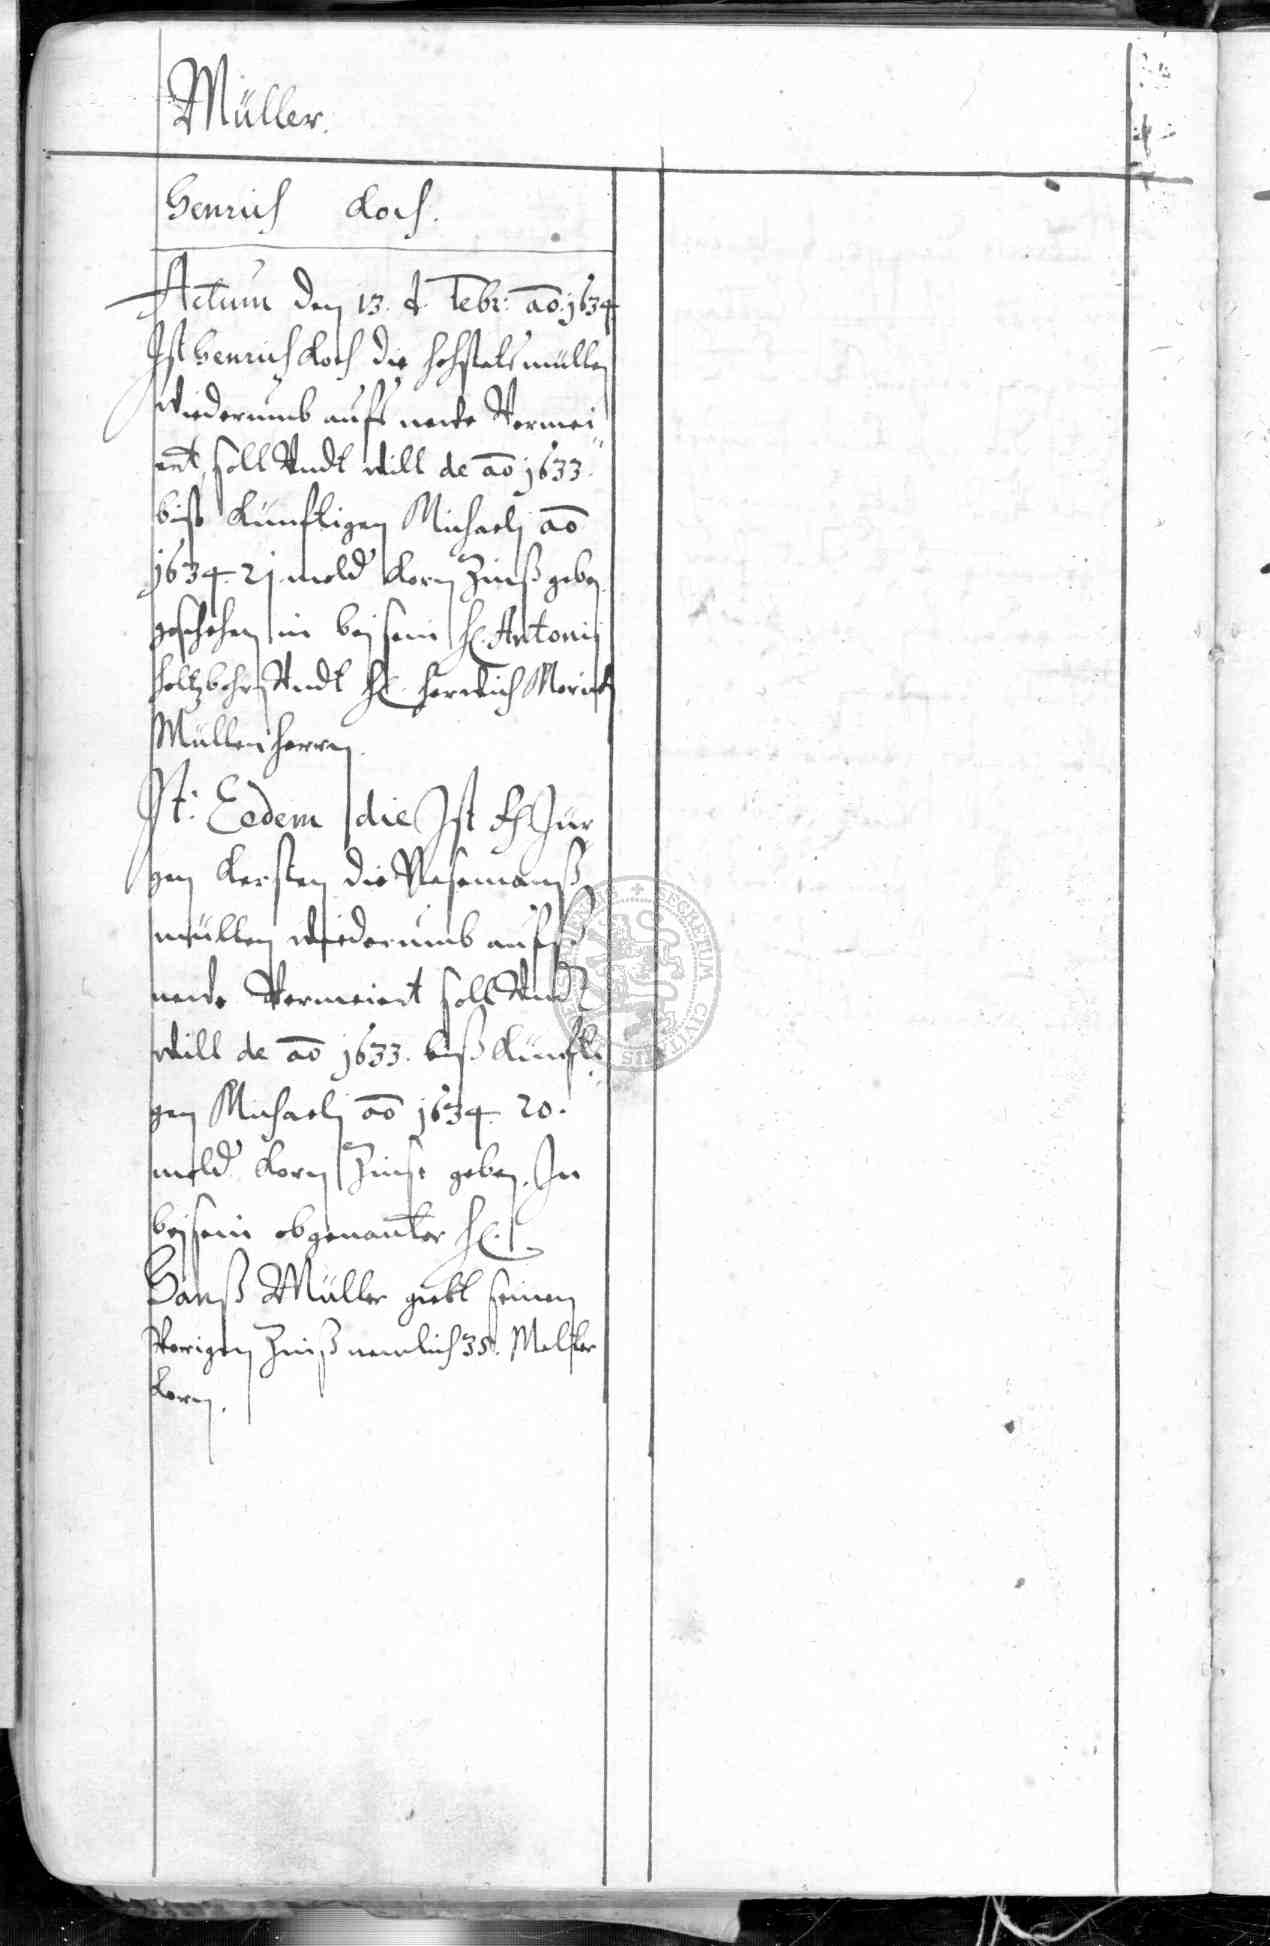 Müller.
Henrich Koch.
Actum den 13. t. Febr: ao. 1634
Ist Henrich Koch die müllen
wiederumb aufs newe Vermei
ert, soll Vndt will de ao 1633.
biß Künfftigen Michaelj ao
1634. 21. mold Korn Zinß geben
geschehen in beisein H. Antonij
Holtzbohrn Vndt H. Henrich
Müllenherrn.
It: Eodem die Ist Jür
gen Kersten die
müllen wiederumb aufs
newe Vermeiert soll Vndt
will de ao 1633. biß Künffti
gen Michaelj ao 1634. 20.
mold Korn Zinse geben. In
beisein obgenanter H.
Hanß Müller giebt seinen
Vorigen Zinß nemlich 35. Malter
Korn.
SECRETUM CIVI